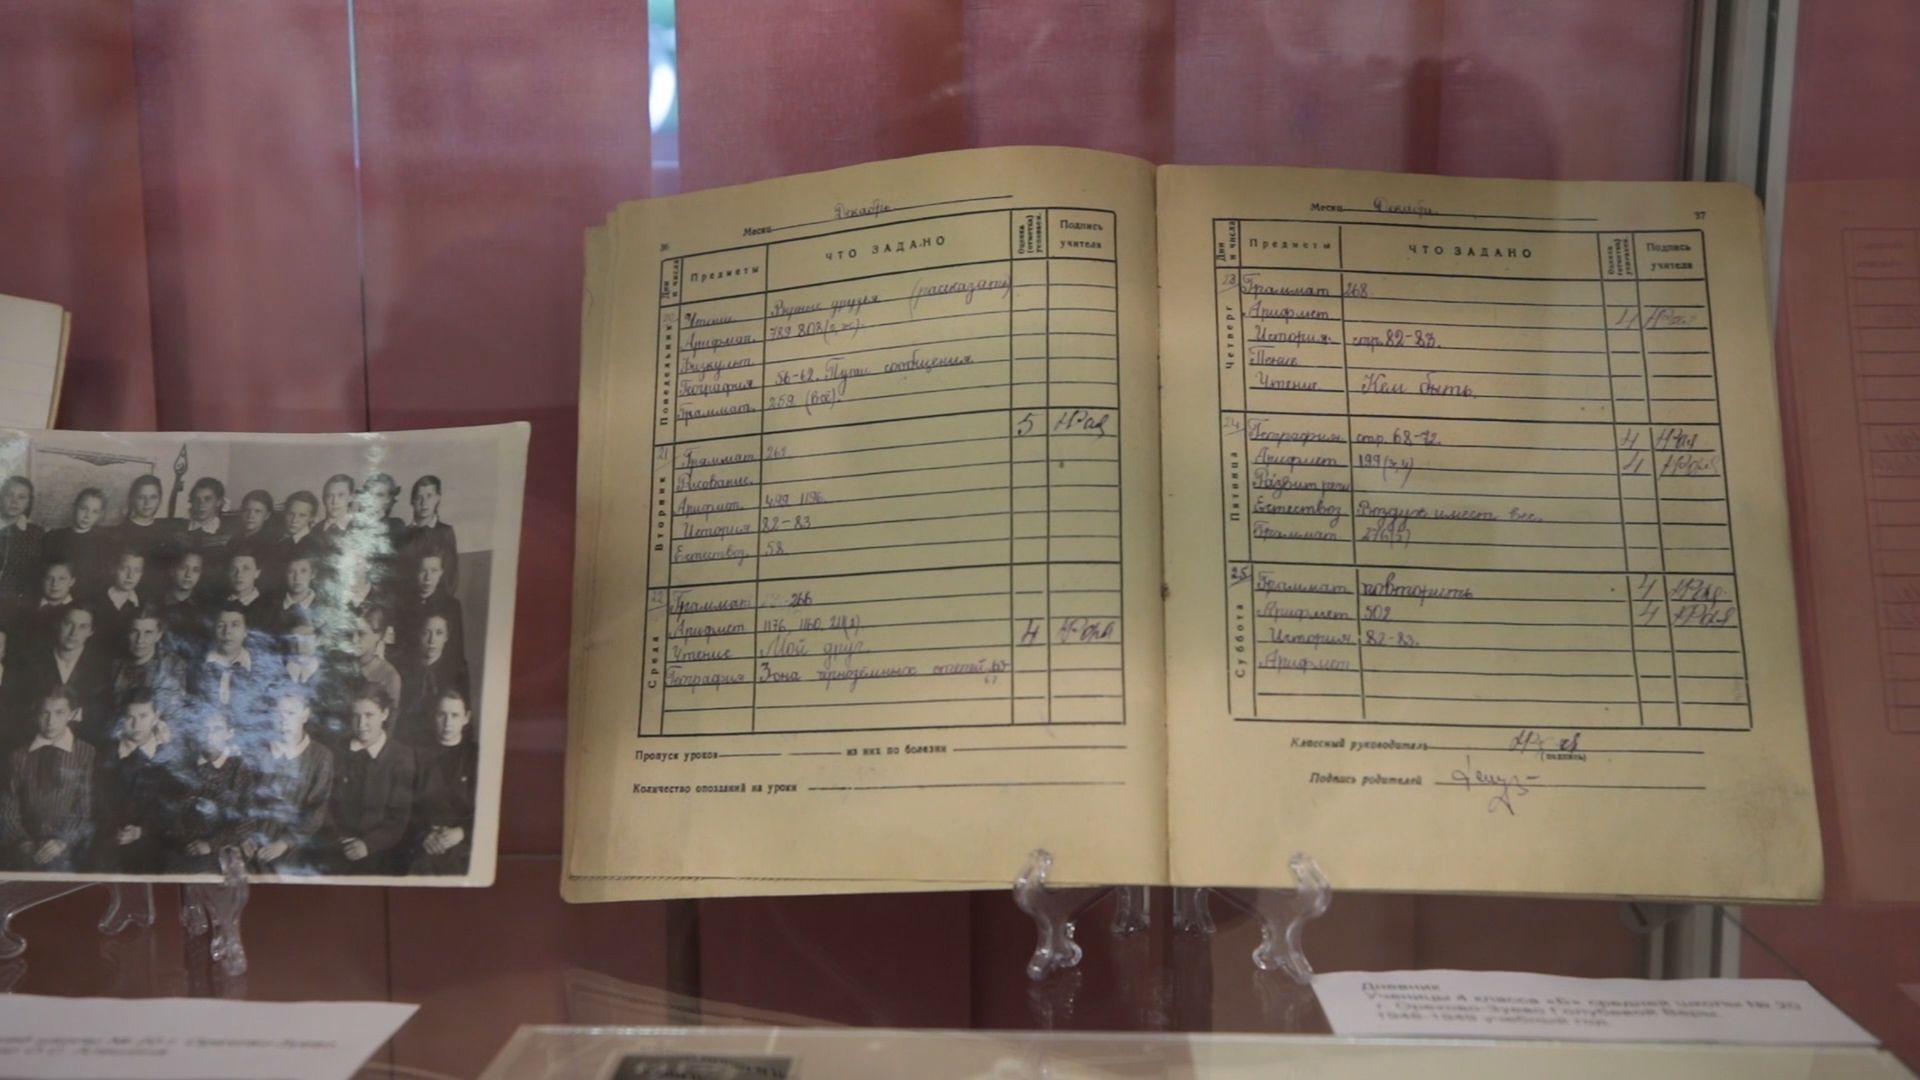 36
Месяц Декабрь
Дни и числа Предметы ЧТО ЗАДАНО Оценка (отметка) успеваем. Подпись учителя
Понедельник
20 Чтение Верные друзья (рассказать)
Арифмат. 789 808
Физкульт.
География 56-62. Пути сообщения
Граммат. 259 (все).
Вторник
5
21 Граммат
Рисование.
Арифмат. 499. 1196.
История 82-83
Естествоз. 58.
Среда
22 Граммат 266
Арифмет 1176. 1160.
Чтение Мой друг. 4
География Зона чернозёмных степей
Пропуск уроков из них по болезни
Количество опозданий на уроки
37
Месяц Декабрь.
Дни и числа Предметы ЧТО ЗАДАНО Оценка (отметка) успеваем. Подпись учителя
Четверг
23 Граммат 268.
Арифмет 4
История. стр. 82-83.
Пение
Чтение Кем быть.
Пятница
24 География. стр. 68-72. 4
Арифмет 199(3,4) 4
Развит речи
Естествоз Воздух имеет вес.
Граммат
Суббота
25 Граммат повторить 4
Арифмет 502 4
История 82-83.
Арифмет
Классный руководитель
(подпись)
Подпись родителей
Дневник
Ученицы 4 класса «Б» средней школы № 20
г. Орехово-Зуево Голубевой Веры.
1948-1949 учебный год.